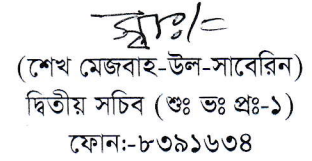 স্বাঃ/=
(শেখ মেজবাহ-উল-সাবেরিন)
দ্বিতীয় সচিব (শুঃ ভঃ প্রঃ-১)
ফোন:-৮৩৯১৬৩৪